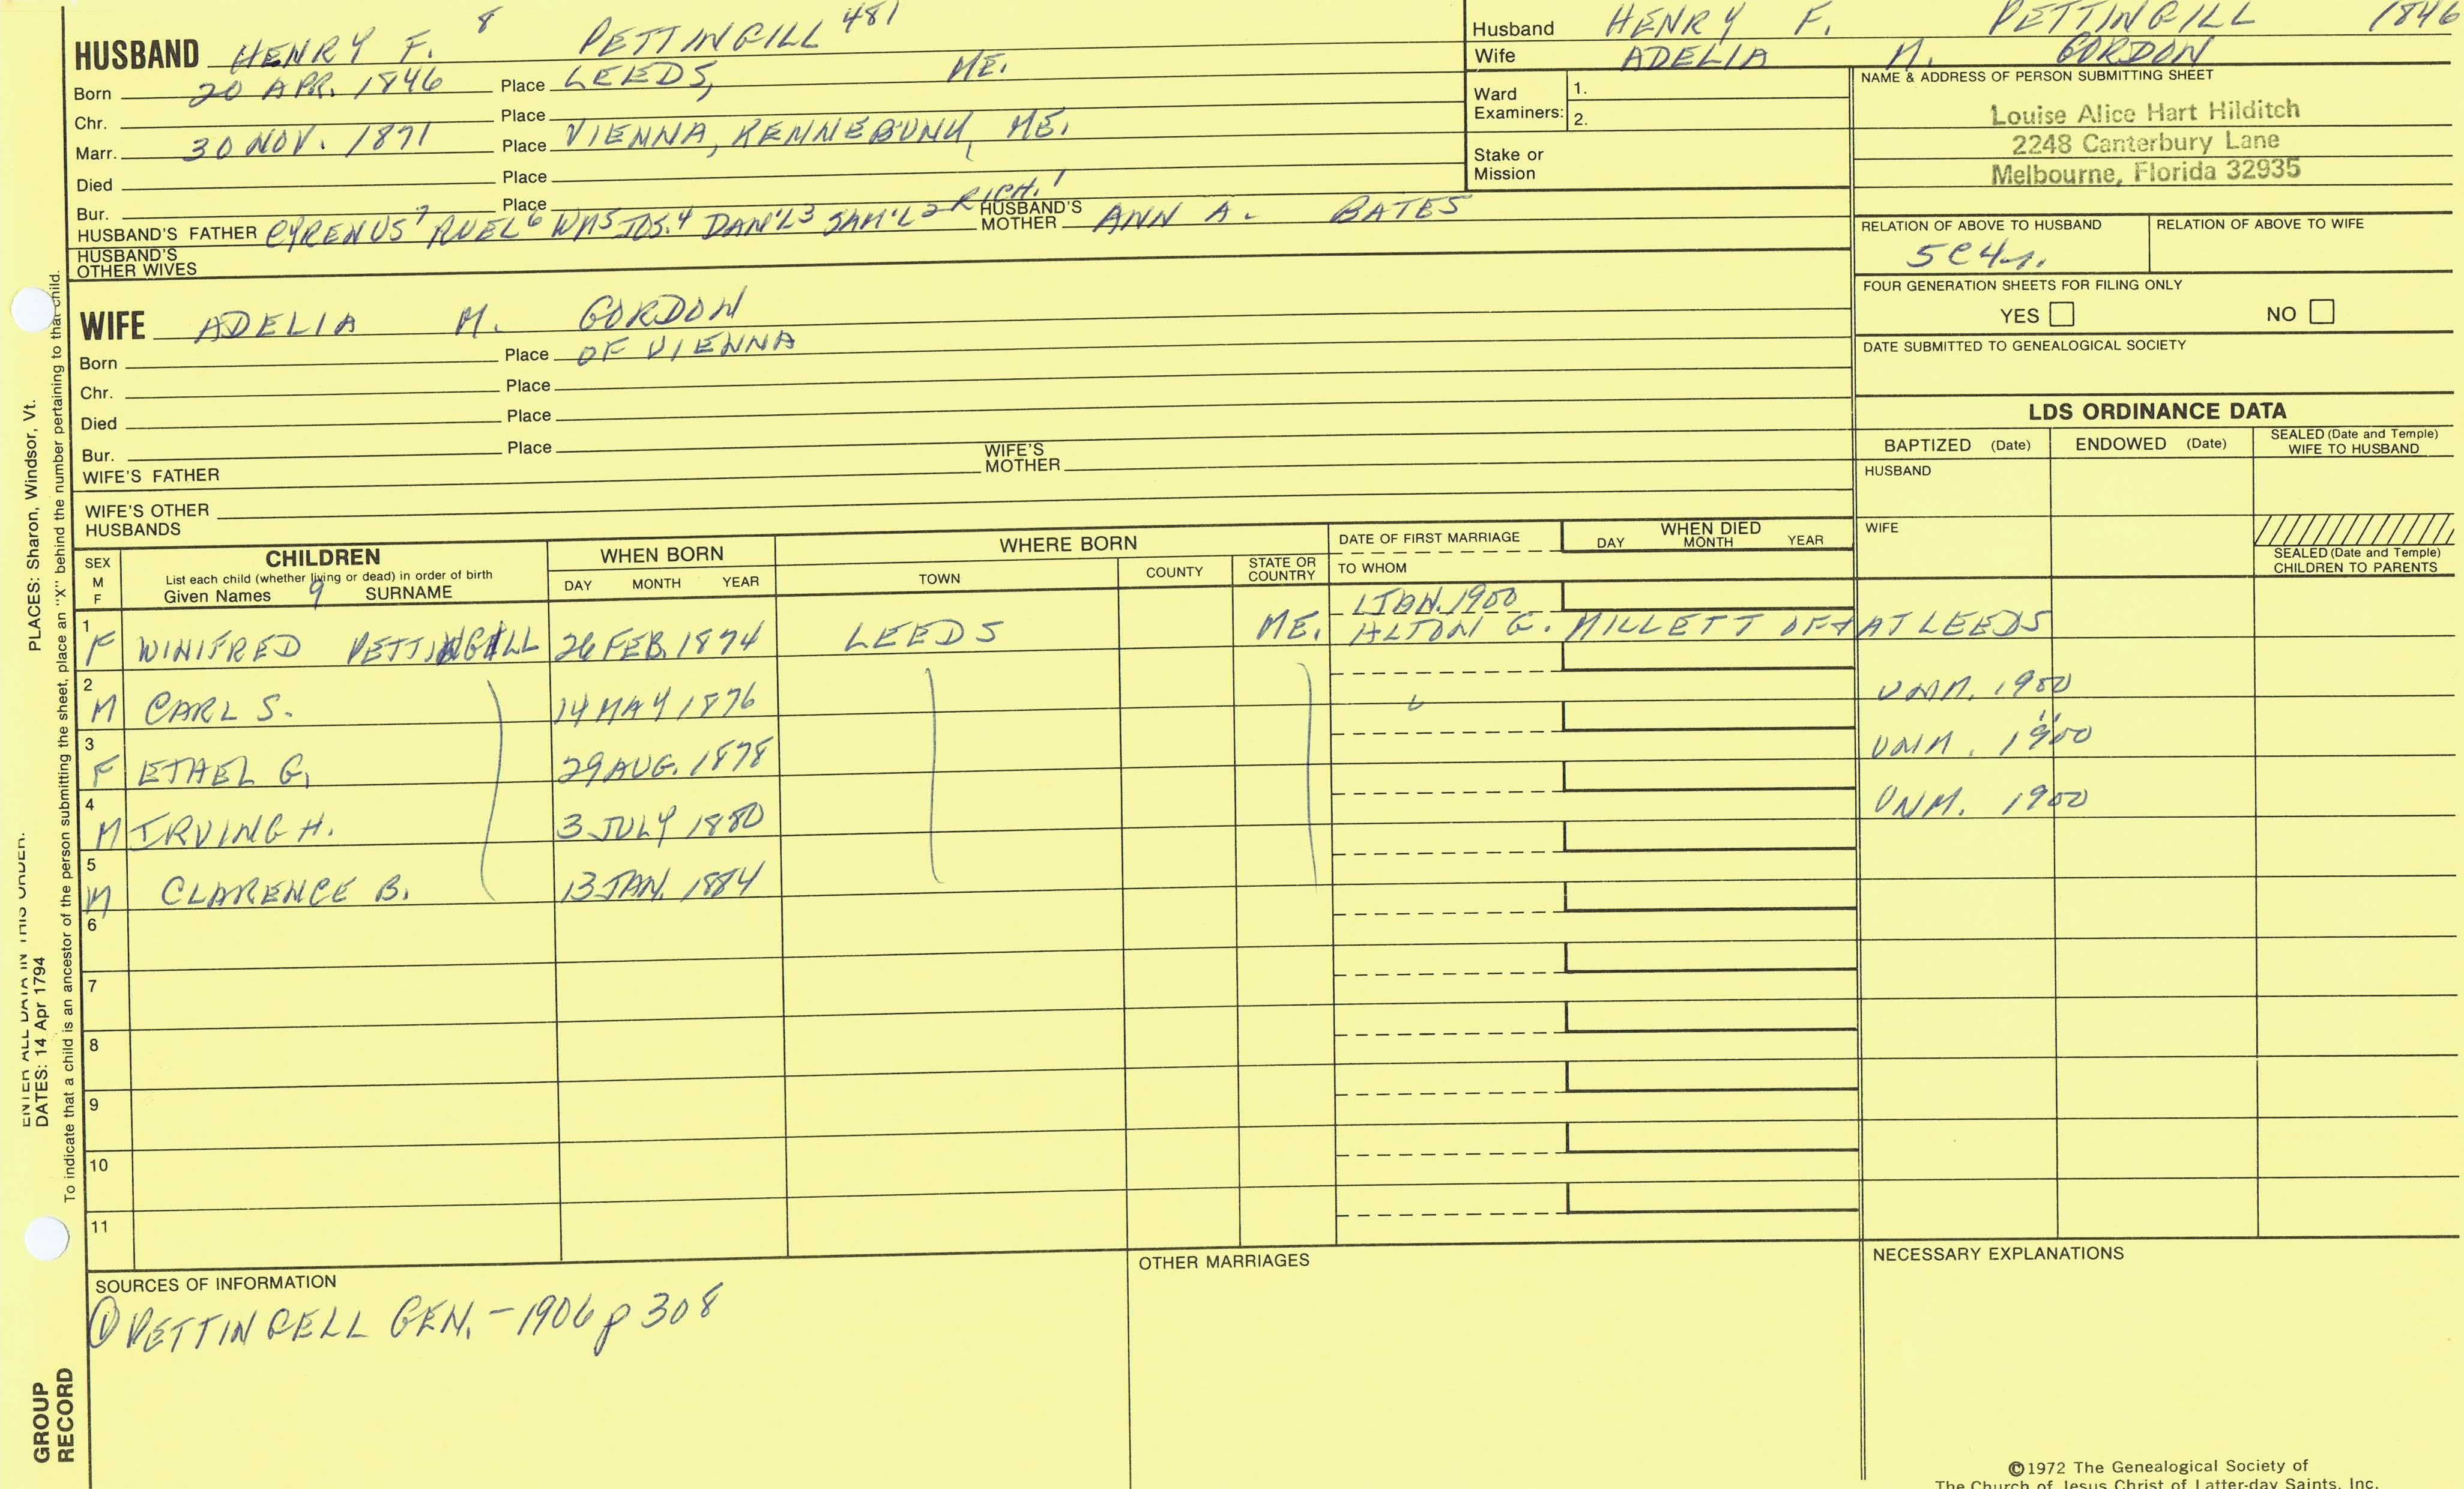 HUSBAND HENRY F. 8 PETTINGILL 481
Born 20 APR. 1846 Place LEEDS, ME.
Chr. Place
Marr. 30 NOV. 1871 Place VIENNA, KENNEBUNK, ME.
Died Place
Bur. Place
HUSBAND'S FATHER CYRENUS7 RUEL6 WM5 JOS.4 DAN'L3 SAM'L2 RICH.1 HUSBAND'S MOTHER ANN A. BATES
HUSBAND'S OTHER WIVES
Husband HENRY F. PETTINGILL 1846
Wife ADELIA M. GORDON
Ward Examiners: 1.
2.
Stake or Mission
NAME & ADDRESS OF PERSON SUBMITTING SHEET
Louise Alice Hart Hilditch
2248 Canterbury Lane
Melbourne, Florida 32935
RELATION OF ABOVE TO HUSBAND RELATION OF ABOVE TO WIFE
5C4r.
FOUR GENERATION SHEETS FOR FILING ONLY
YES NO
DATE SUBMITTED TO GENEALOGICAL SOCIETY
WIFE ADELIA M. GORDON
Born Place OF VIENNA
Chr. Place
Died Place
Bur. Place
WIFE'S FATHER WIFE'S MOTHER
WIFE'S OTHER HUSBANDS
LDS ORDINANCE DATA
BAPTIZED (Date) ENDOWED (Date) SEALED (Date and Temple) WIFE TO HUSBAND
HUSBAND
WIFE
SEALED (Date and Temple) CHILDREN TO PARENTS
SEX M F
CHILDREN
List each child (whether living or dead) in order of birth
Given Names 9 SURNAME
WHEN BORN
DAY MONTH YEAR
WHERE BORN
TOWN COUNTY STATE OR COUNTRY
DATE OF FIRST MARRIAGE
TO WHOM
WHEN DIED
DAY MONTH YEAR
1 JAN. 1900
1 F WINIFRED PETTINGILL 26 FEB. 1874 LEEDS ME. ALTON G. MILLETT OF & AT LEEDS
2 M CARL S. 14 MAY 1876 UNM. 1900
3 F ETHEL G. 29 AUG. 1878 UNM. 1900
4 M IRVING H. 3 JULY 1880 UNM. 1900
5 M CLARENCE B. 13 JAN. 1884
6
7
8
9
10
11
SOURCES OF INFORMATION
① PETTINGELL GEN. - 1906 p 308
OTHER MARRIAGES
NECESSARY EXPLANATIONS
©1972 The Genealogical Society of
The Church of Jesus Christ of Latter-day Saints, Inc.
ENTER ALL DATA IN THIS ORDER:
DATES: 14 Apr 1794 PLACES: Sharon, Windsor, Vt.
To indicate that a child is an ancestor of the person submitting the sheet, place an "X" behind the number pertaining to that child.
GROUP
RECORD